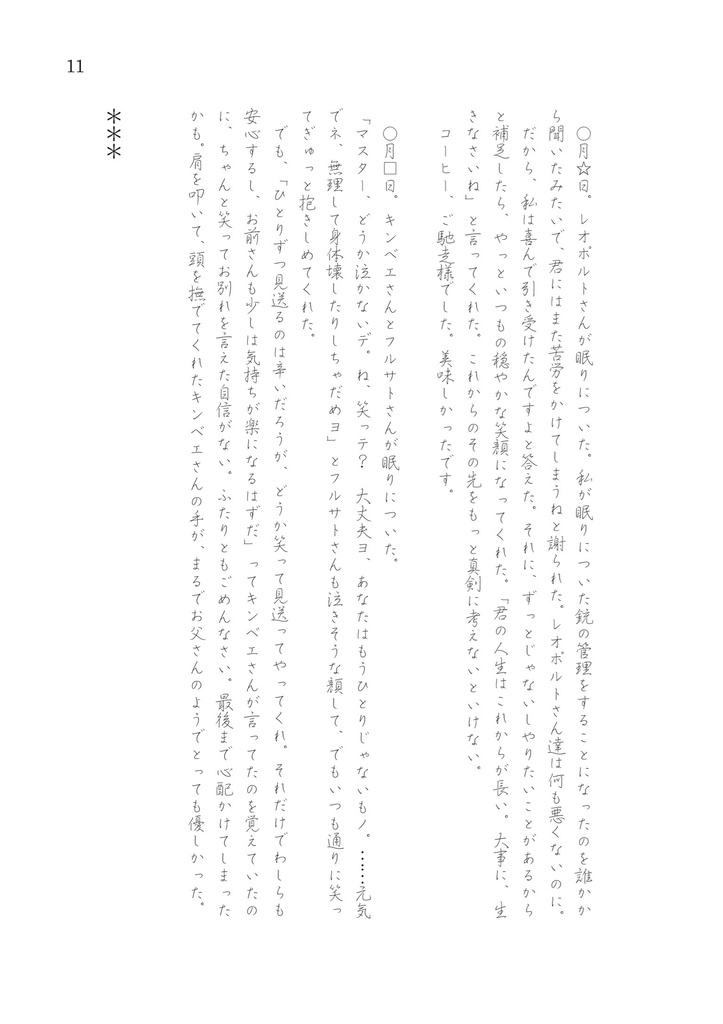 11
〇月☆日。レオポルトさんが眠りについた。私が眠りについた銃の管理をすることになったのを誰かか
ら聞いたみたいで、君にはまた苦労をかけてしまうねと謝られた。レオポルトさん達は何も悪くないのに。
だから、私は喜んで引き受けたんですよと答えた。それに、ずっとじゃないしやりたいことがあるから
と補足したら、やっといつもの穏やかな笑顔になってくれた。「君の人生はこれからが長い。大事に、生
きなさいね」と言ってくれた。これからのその先をもっと真剣に考えないといけない。
コーヒー、ご馳走様でした。美味しかったです。
〇月□日。キンベエさんとフルサトさんが眠りについた。
「マスター、どうか泣かないデ。ね、笑っテ？　大丈夫ヨ、あなたはもうひとりじゃないもノ。……元気
でネ、無理して身体壊したりしちゃだめヨ」とフルサトさんも泣きそうな顔して、でもいつも通りに笑っ
てぎゅっと抱きしめてくれた。
でも、「ひとりずつ見送るのは辛いだろうが、どうか笑って見送ってやってくれ。それだけでわしらも
安心するし、お前さんも少しは気持ちが楽になるはずだ」ってキンベエさんが言ってたのを覚えていたの
に、ちゃんと笑ってお別れを言えた自信がない。ふたりともごめんなさい。最後まで心配かけてしまった
かも。肩を叩いて、頭を撫でてくれたキンベエさんの手が、まるでお父さんのようでとっても優しかった。
＊＊＊